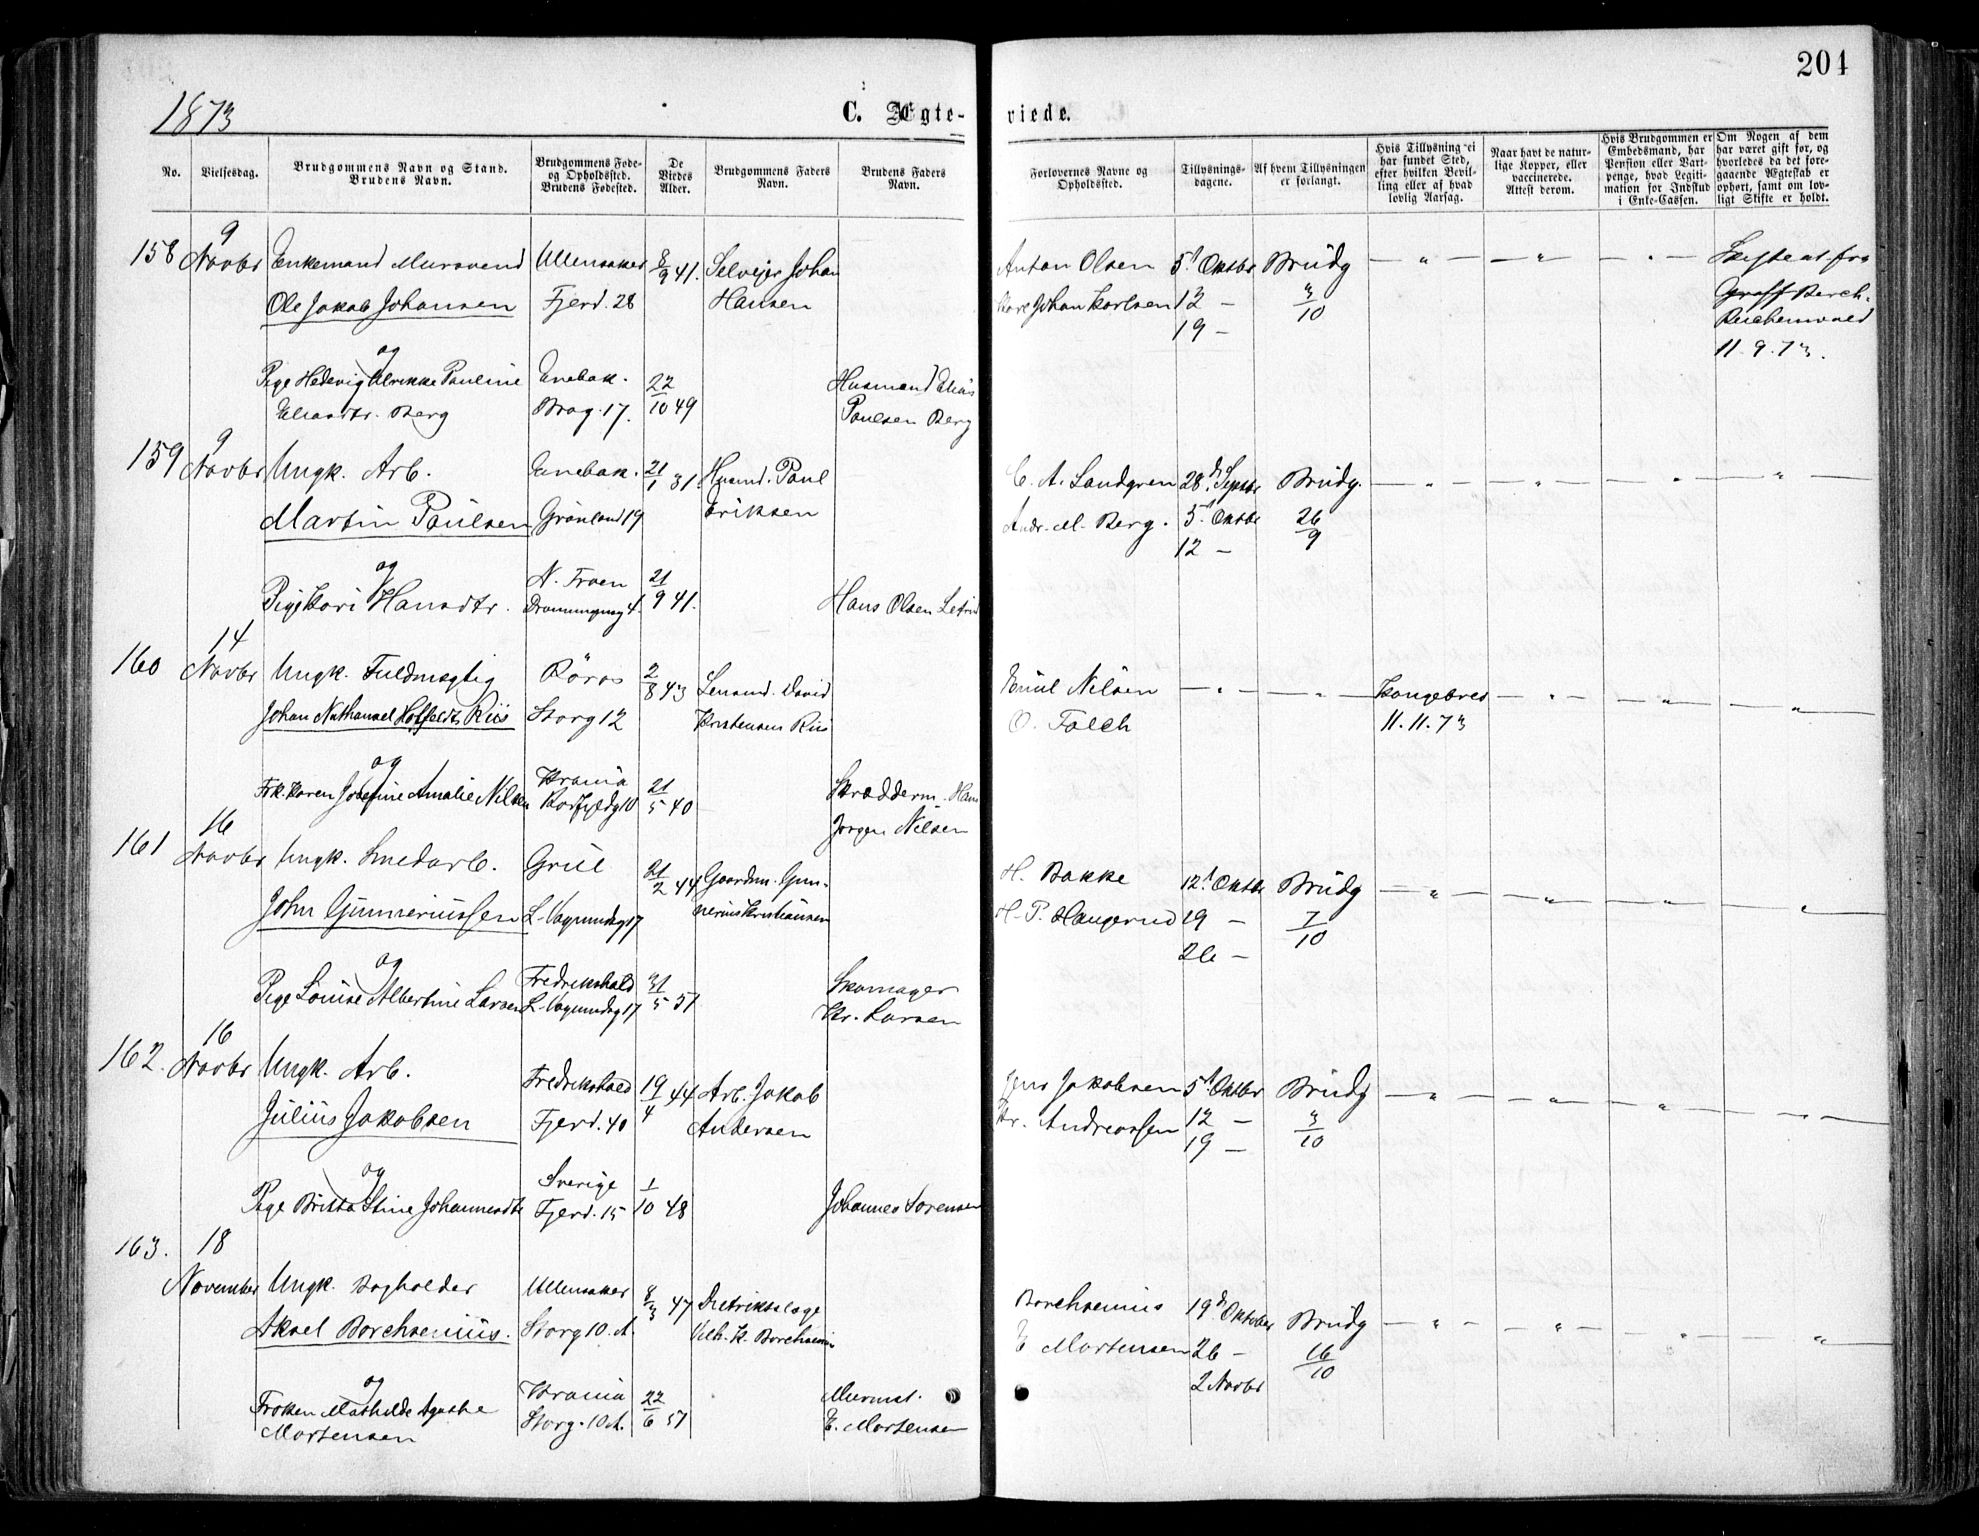 204
1873
C. Ægte-
viede.
No.
Vielsesdag.
Brudgommens Navn og Stand.
Brudens Navn.
Brudgommens Føde-
og Opholdssted.
Brudens Fødested.
De
Viedes
Alder.
Brudgommens Faders
Navn.
Brudens Faders
Navn.
Forlovernes Navne og
Opholdssted.
Tillysnings-
dagene.
Af hvem Tillysningen
er forlangt.
Hvis Tillysning ei
har fundet Sted,
efter hvilken Bevil-
ling eller af hvad
lovlig Aarsag.
Naar havt de natur-
lige Kopper, eller
vaccinerede.
Attest derom.
Hvis Brudgommen er
Embedsmand, har
Pension eller Vart-
penge, hvad Legiti-
mation for Indskud
i Enke-Cassen.
Om Nogen af dem
har været gift før, og
hvorledes da det fore-
gaaende Ægteskab er
ophørt, samt om lov-
ligt Skifte er holdt.
158 9 Novbr Enkemand Mursvend Ullensaker 8/9 41. Selveier Johan Anton Olsen 5t Oktbr Brudg — „ — „ — „ — Skifteat. fra
Ole Jakob Johansen Fjerd. 28 Hansen Karl Johan Karlsen 12 — 3/10
19 — Reichenwald
11.9.73.
og
Pige Hedevig Ulrikke Pauline Enebak. 22/10 49 Husmand Elias
Eliasdtr. Berg Brog. 17. Paulsen Berg
159 9 Novbr Ungk. Arb. Enebak. 21/1 31. Husmd. Paul C. A. Landgren 28d Septbr Brudg. — „ — „ — „ — „
Martin Paulsen Grønland 19 Eriksen Andr. M. Berg. 5t Oktbr 26/9
12 —
og
Pige Kari Hansdtr. N. Froen 21/9 41. Hans Olsen
4.
160 14 Novbr Ungk. Fuldmægtig Røros 2/8 43 Lensmd. David Emil Nilsen — „ — „ — Kongebrev — „ — „ — „
Johan Nathanael Holfeldt Riis Storg 12 Kristensen Riis O. Falch 11.11.73
og
Frk. Karen Josefine Amalie Nilsen Krania 21/5 40 Skrædderm. Hans
10 Jørgen Nilsen
161 16 Novbr Ungk. Smedarb. Grue 21/2 44 Gaardm. Gun- H. Bakke 12t Oktbr Brudg — „ — „ — „ — „
John Gunneriussen L. Vognmdsg 17 nerius Kristiansen H. P. Haugerud 19 — 7/10
26 —
og
Pige Louise Albertine Larsen Fredrikshald 31/5 51 Skomager
L. Vognmdsg 17 Kr. Larsen
162. 16 Novbr Ungk. Arb. Fredrikshald 19/4 44 Arb. Jakob Jens Jakobsen 5t Oktbr Brudg — „ — „ — „ — „ —
Julius Jakobsen Fjerd. 40 Andersen Kr. Andreassen 12 — 3/10
19 —
og
Pige Britta Stine Johannesdtr Sverige 1/10 48 Johannes Sørensen
Fjerd. 15
163. 18 November Ungk. Bogholder Ullensaker 8/3 47 Distriktslæge Borchsenius 19d Oktober Brudg — „ — „ — „ — „
Aksel Borchsenius. Storg 10. A. Vilh. K. Borchsenius E Mortensen 26 — 16/10
2 Novbr
og
Frøken Mathilde Agathe Krania 22/6 51 Murmst.
Mortensen Storg. 10 A. E. Mortensen